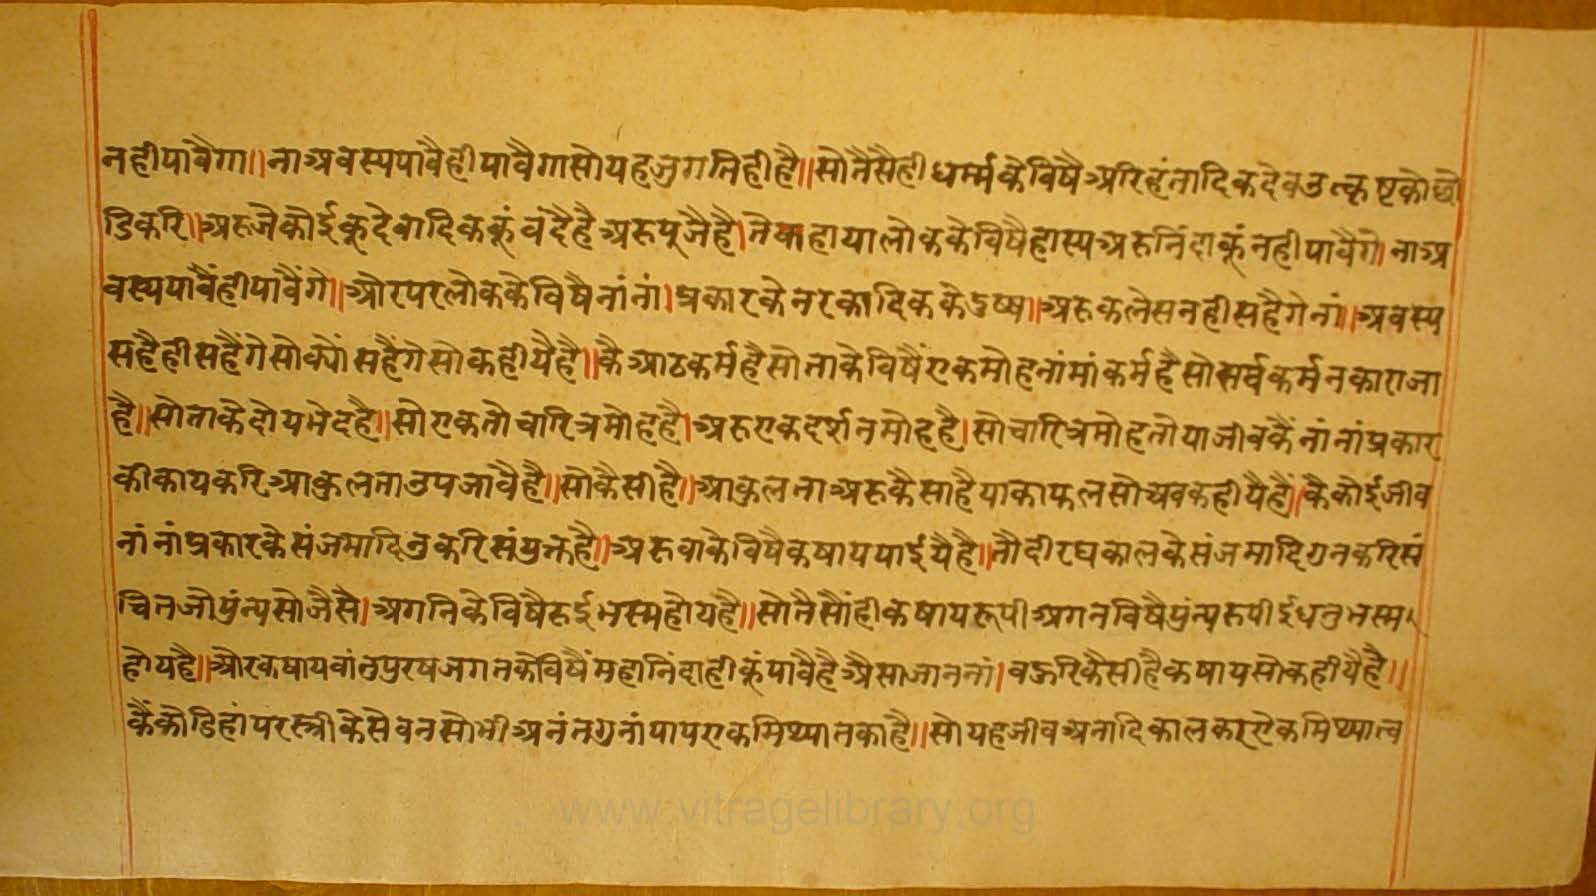 नहीपावैगा॥नाअवस्यपावैहीपावैगासोयहजुगतिहीहै॥सोतैसैहीधर्म्मकेविषैअरिहंतादिकदेवउत्कृष्टकोछो
डिकरि॥अरूजैकोईकूदेवादिककूंवंदैहैअरूपूजैहै।तेकहायालोककेविषैहास्यअरूनिंदाकूंनहीपावैंगे।नाअ
वस्यपावैंहीपावैंगे॥औरपरलोककेविषैनांनां।प्रकारकेनरकादिककेदुष्ष॥अरूकलेसनहीसहैगेनां॥अवस्य
सहैहीसहैंगेसोक्योंसहैंगेसोकहीयैहै॥कैआठकर्महैसोताकेविषैंएकमोहनांमांकर्महैसोसर्वकर्मनकाराजा
है॥सोताकेदोयभेदहै॥सोएकतोचारित्रमोहहै।अरूएकदर्शनमोहहै।सोचारित्रमोहतोयाजीवकैंनांनांप्रकार
कीकायकरिआकुलताउपजावैहै॥सोकैसीहै॥आकुलताअरूकैसाहैयाकाफलसोअवकहीयैहै॥कैकोईजीव
नांनांप्रकारकेसंजमादिनुकरिसंयुक्तहै॥अरूवाकेविषैकषायपाईयैहै॥तौदीरघकालकेसंजमादिगुनकरिसं
चितजोपुंन्यसोजैसै।अगनिकेविषैरूईभस्महोयहै॥सोतैसौंहीकषायरूपीअगनविषैपुंन्यरूपीईधनुभस्म
होयहै॥औरकषायवांनपुरषजगतकेविषैंमहानिंदाहीकूंपावैहैऐसाजाननां।वऊरिकैसीहैकषायसोकहीयैहै॥
कैंकोडिहांपरस्त्रीकेसेवनसोभीअनंतगुनांपापएकमिथ्यातकाहै॥सोयहजीवअनादिकालकाएकमिथ्यात्व
www.vitragelibrary.org